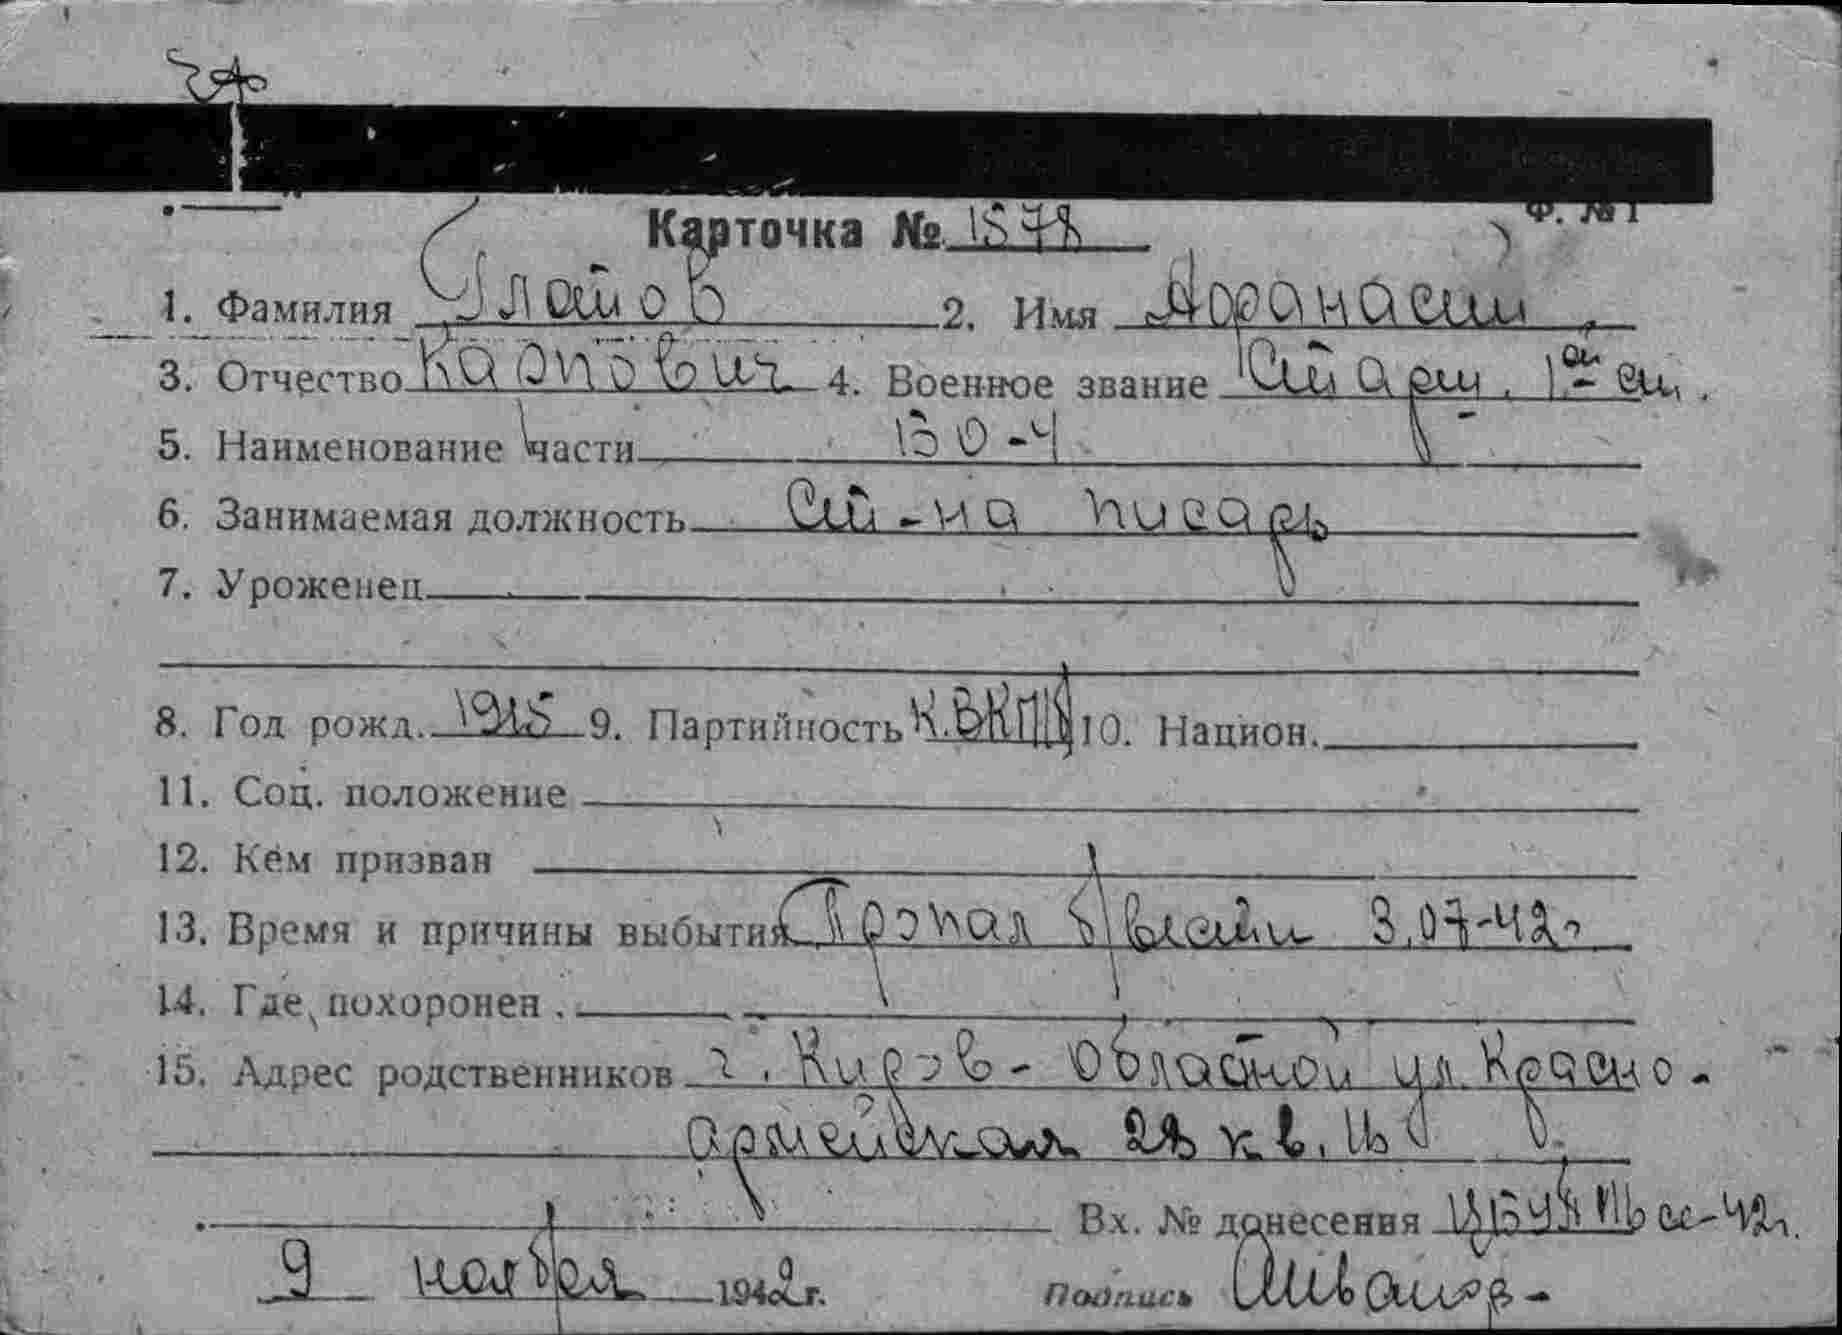 Ф. №1
Карточка № 1578
1. Фамилия Платов 2. Имя Афанасий
3. Отчество Карпович 4. Военное звание Старш. 1ой ст.
5. Наименование части
6. Занимаемая должность Ст-на писарь
7. Уроженец
8. Год рожд. 1915 9. Партийность К.ВКПб 10. Национ.
11. Соц. положение
12. Кем призван
13. Время и причины выбытия Пропал б/вести 3.07-42г
14. Где похоронен.
15. Адрес родственников г. Киров - областной ул. Красно-
армейская 28 кв.
Вх. № донесения сс-42г.
9 ноября 1942 г. Подпись